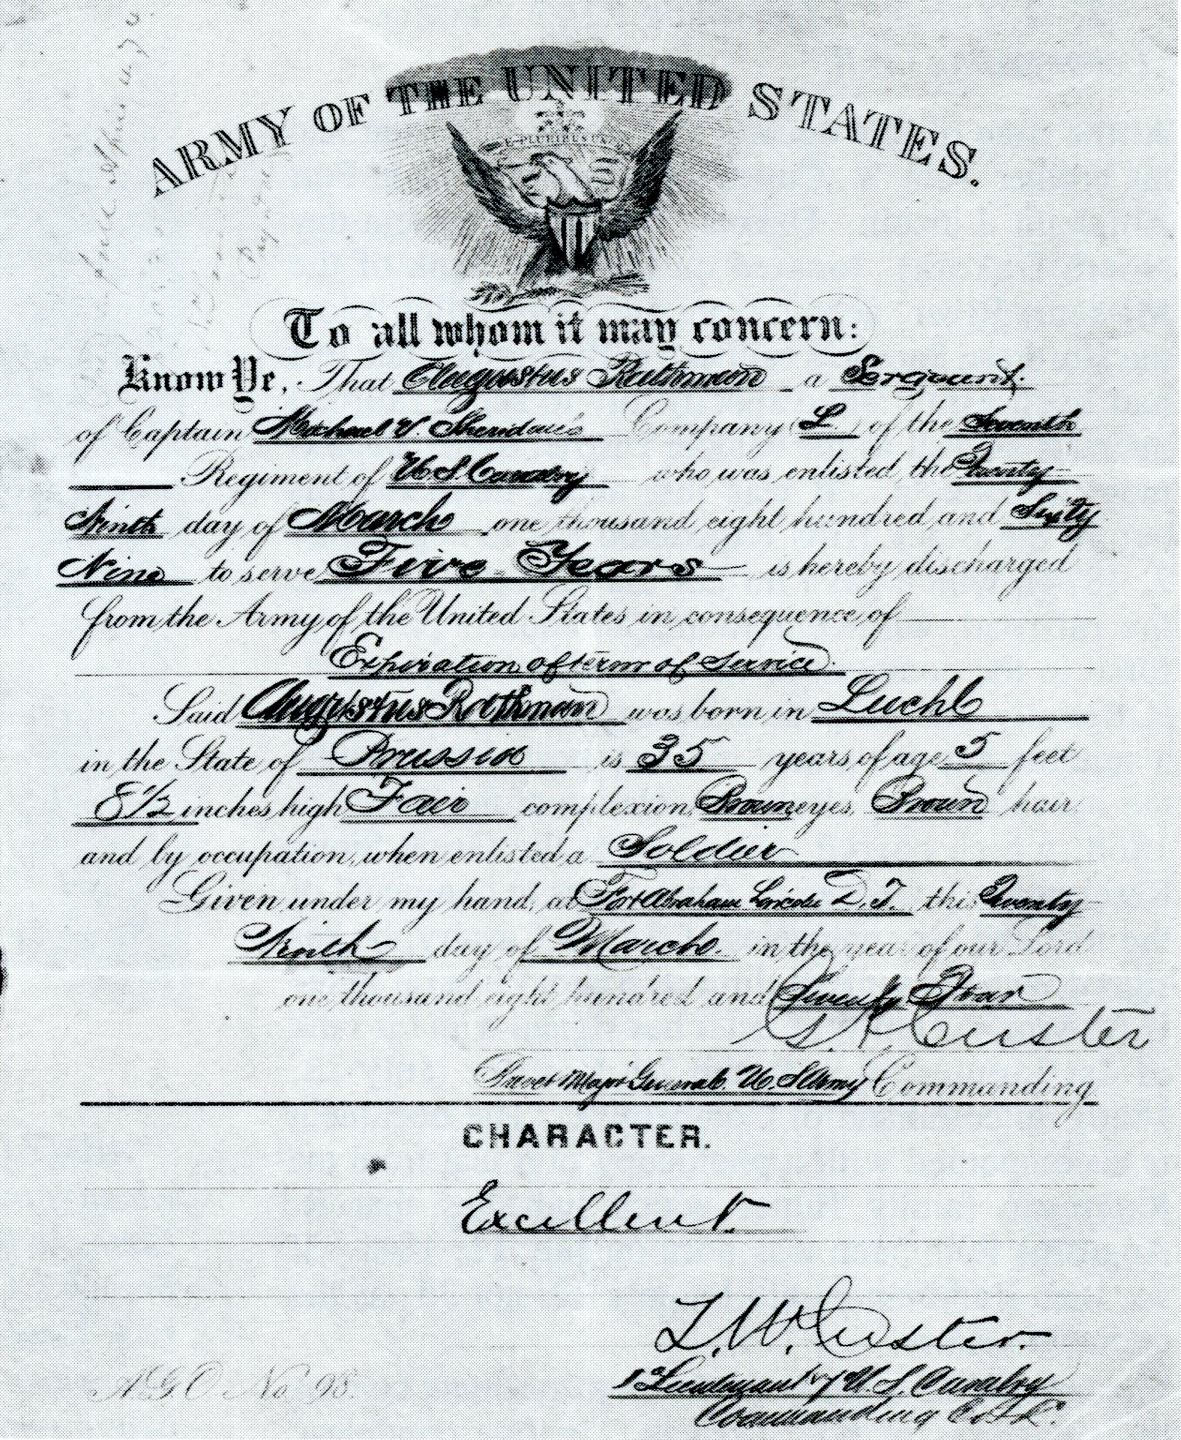 ARMY OF THE UNITED STATES.
E PLURIBUS UNUM
To all whom it may concern:
Know Ye, That Augustus Rathman a Sergeant
of Captain Michael V. Sheridan's Company (L) of the Seventh
Regiment of U S Cavalry who was enlisted the Twenty
Ninth day of March one thousand eight hundred and Sixty
Nine to serve Five Years is hereby discharged
from the Army of the United States in consequence of
Expiration of term of Service.
Said Augustus Rathman was born in Luchl
in the State of Prussia is 35 years of age 5 feet
8 1/2 inches high Fair complexion, Brown eyes, Brown hair
and by occupation, when enlisted a Soldier
Given under my hand, at Fort Abraham Lincoln D. T. this Twenty
Ninth day of March. in the year of our Lord
one thousand eight hundred and Seventy Four
G. A. Custer
Brevet Major General U. S. Army Commanding
CHARACTER.
Excellent.
T. W. Custer.
1st Lieutenant 7 U. S. Cavalry
Commanding Co. L.
A G O No 98.